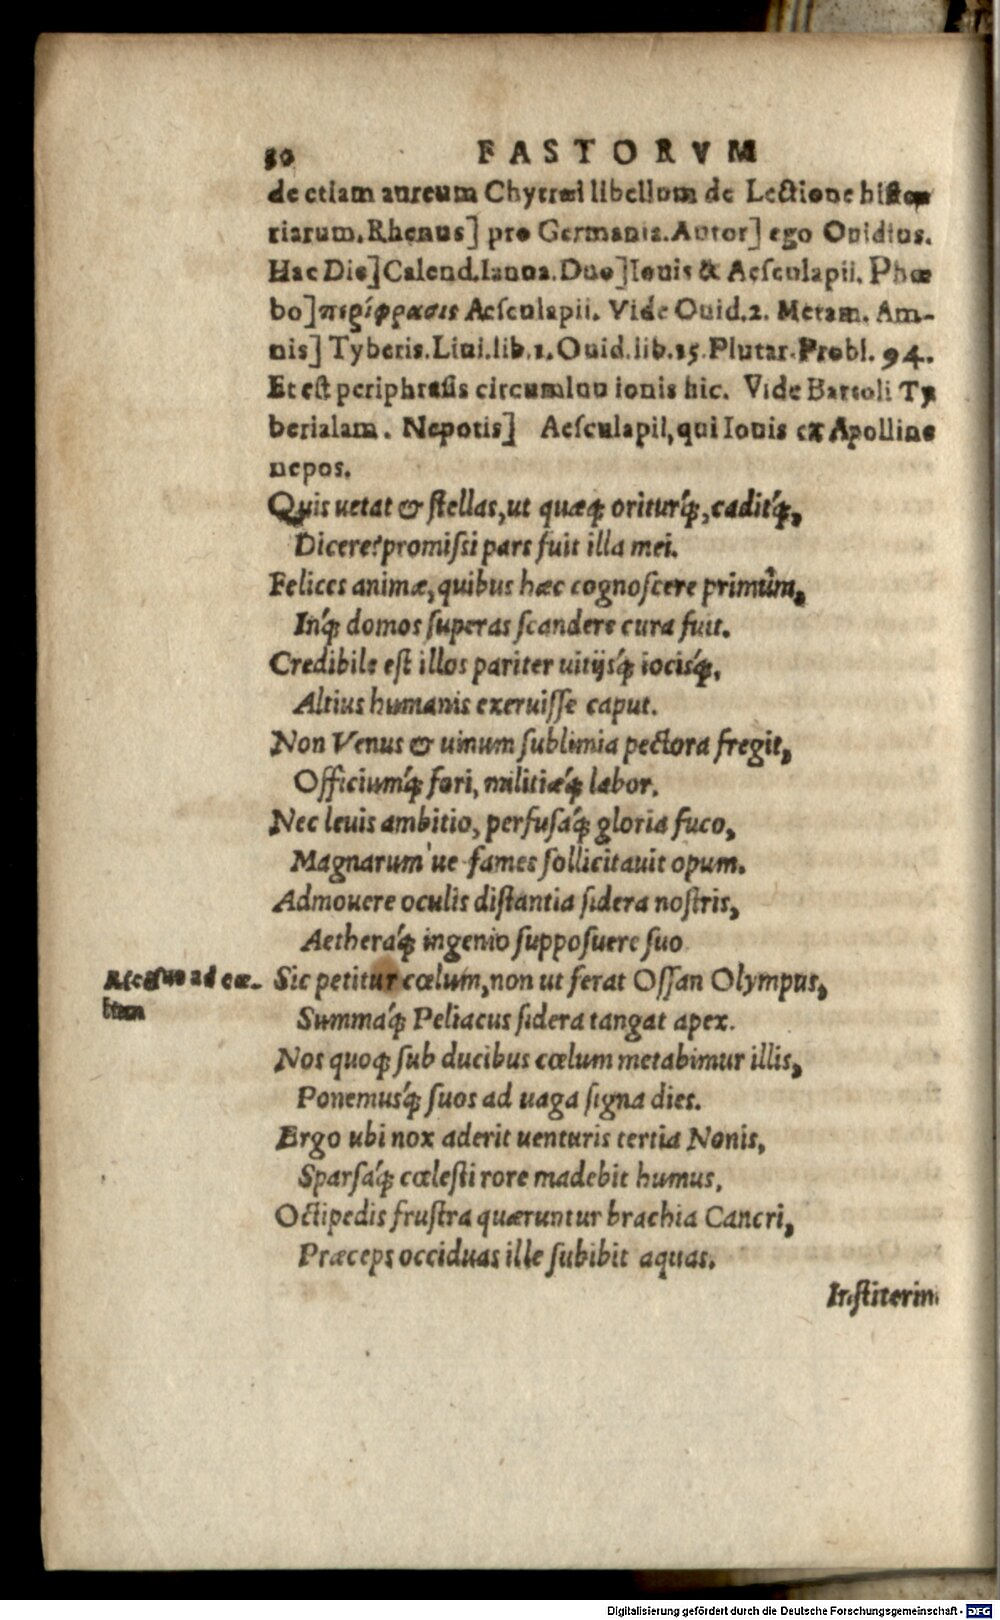 50 FASTORVM
de etiam aureum Chytræi libellum de Lectione histo
riarum. Rhenus] pro Germania. Autor] ego Ouidius.
Hac Die] Calend. Ianua. Duo] Iouis & Aesculapii. Phœ
bo] περίφρασις Aesculapii. Vide Ouid. 2. Metam. Am-
nis] Tyberis. Liui. lib. 1. Ouid. lib. 15. Plutar. Probl. 94.
Et est periphrasis circumluu ionis hic. Vide Bartoli Ty
berialam. Nepotis] Aesculapii, qui Iouis ex Apolline
nepos.
Quis uetat & stellas, ut quæq; oritur'q;, cadit'q;,
Dicere? promissi pars fuit illa mei.
Felices animæ, quibus hæc cognoscere primûm,
In'q; domos superas scandere cura fuit.
Credibile est illos pariter uitijs'q; iocis'q;,
Altius humanis exeruisse caput.
Non Venus & uinum sublimia pectora fregit,
Officium'q; fori, militiæ'q; labor.
Nec leuis ambitio, perfusa'q; gloria fuco,
Magnarum'ue fames sollicitauit opum.
Admouere oculis distantia sidera nostris,
Aethera'q; ingenio supposuere suo.
Ascensus ad cœ-
lum
Sic petitur cœlum, non ut ferat Ossan Olympus,
Summa'q; Peliacus sidera tangat apex.
Nos quoq; sub ducibus cœlum metabimur illis,
Ponemus'q; suos ad uaga signa dies.
Ergo ubi nox aderit uenturis tertia Nonis,
Sparsa'q; cœlesti rore madebit humus,
Octipedis frustra quæruntur brachia Cancri,
Præceps occiduas ille subibit aquas.
Institerin
Digitalisierung gefördert durch die Deutsche Forschungsgemeinschaft - DFG